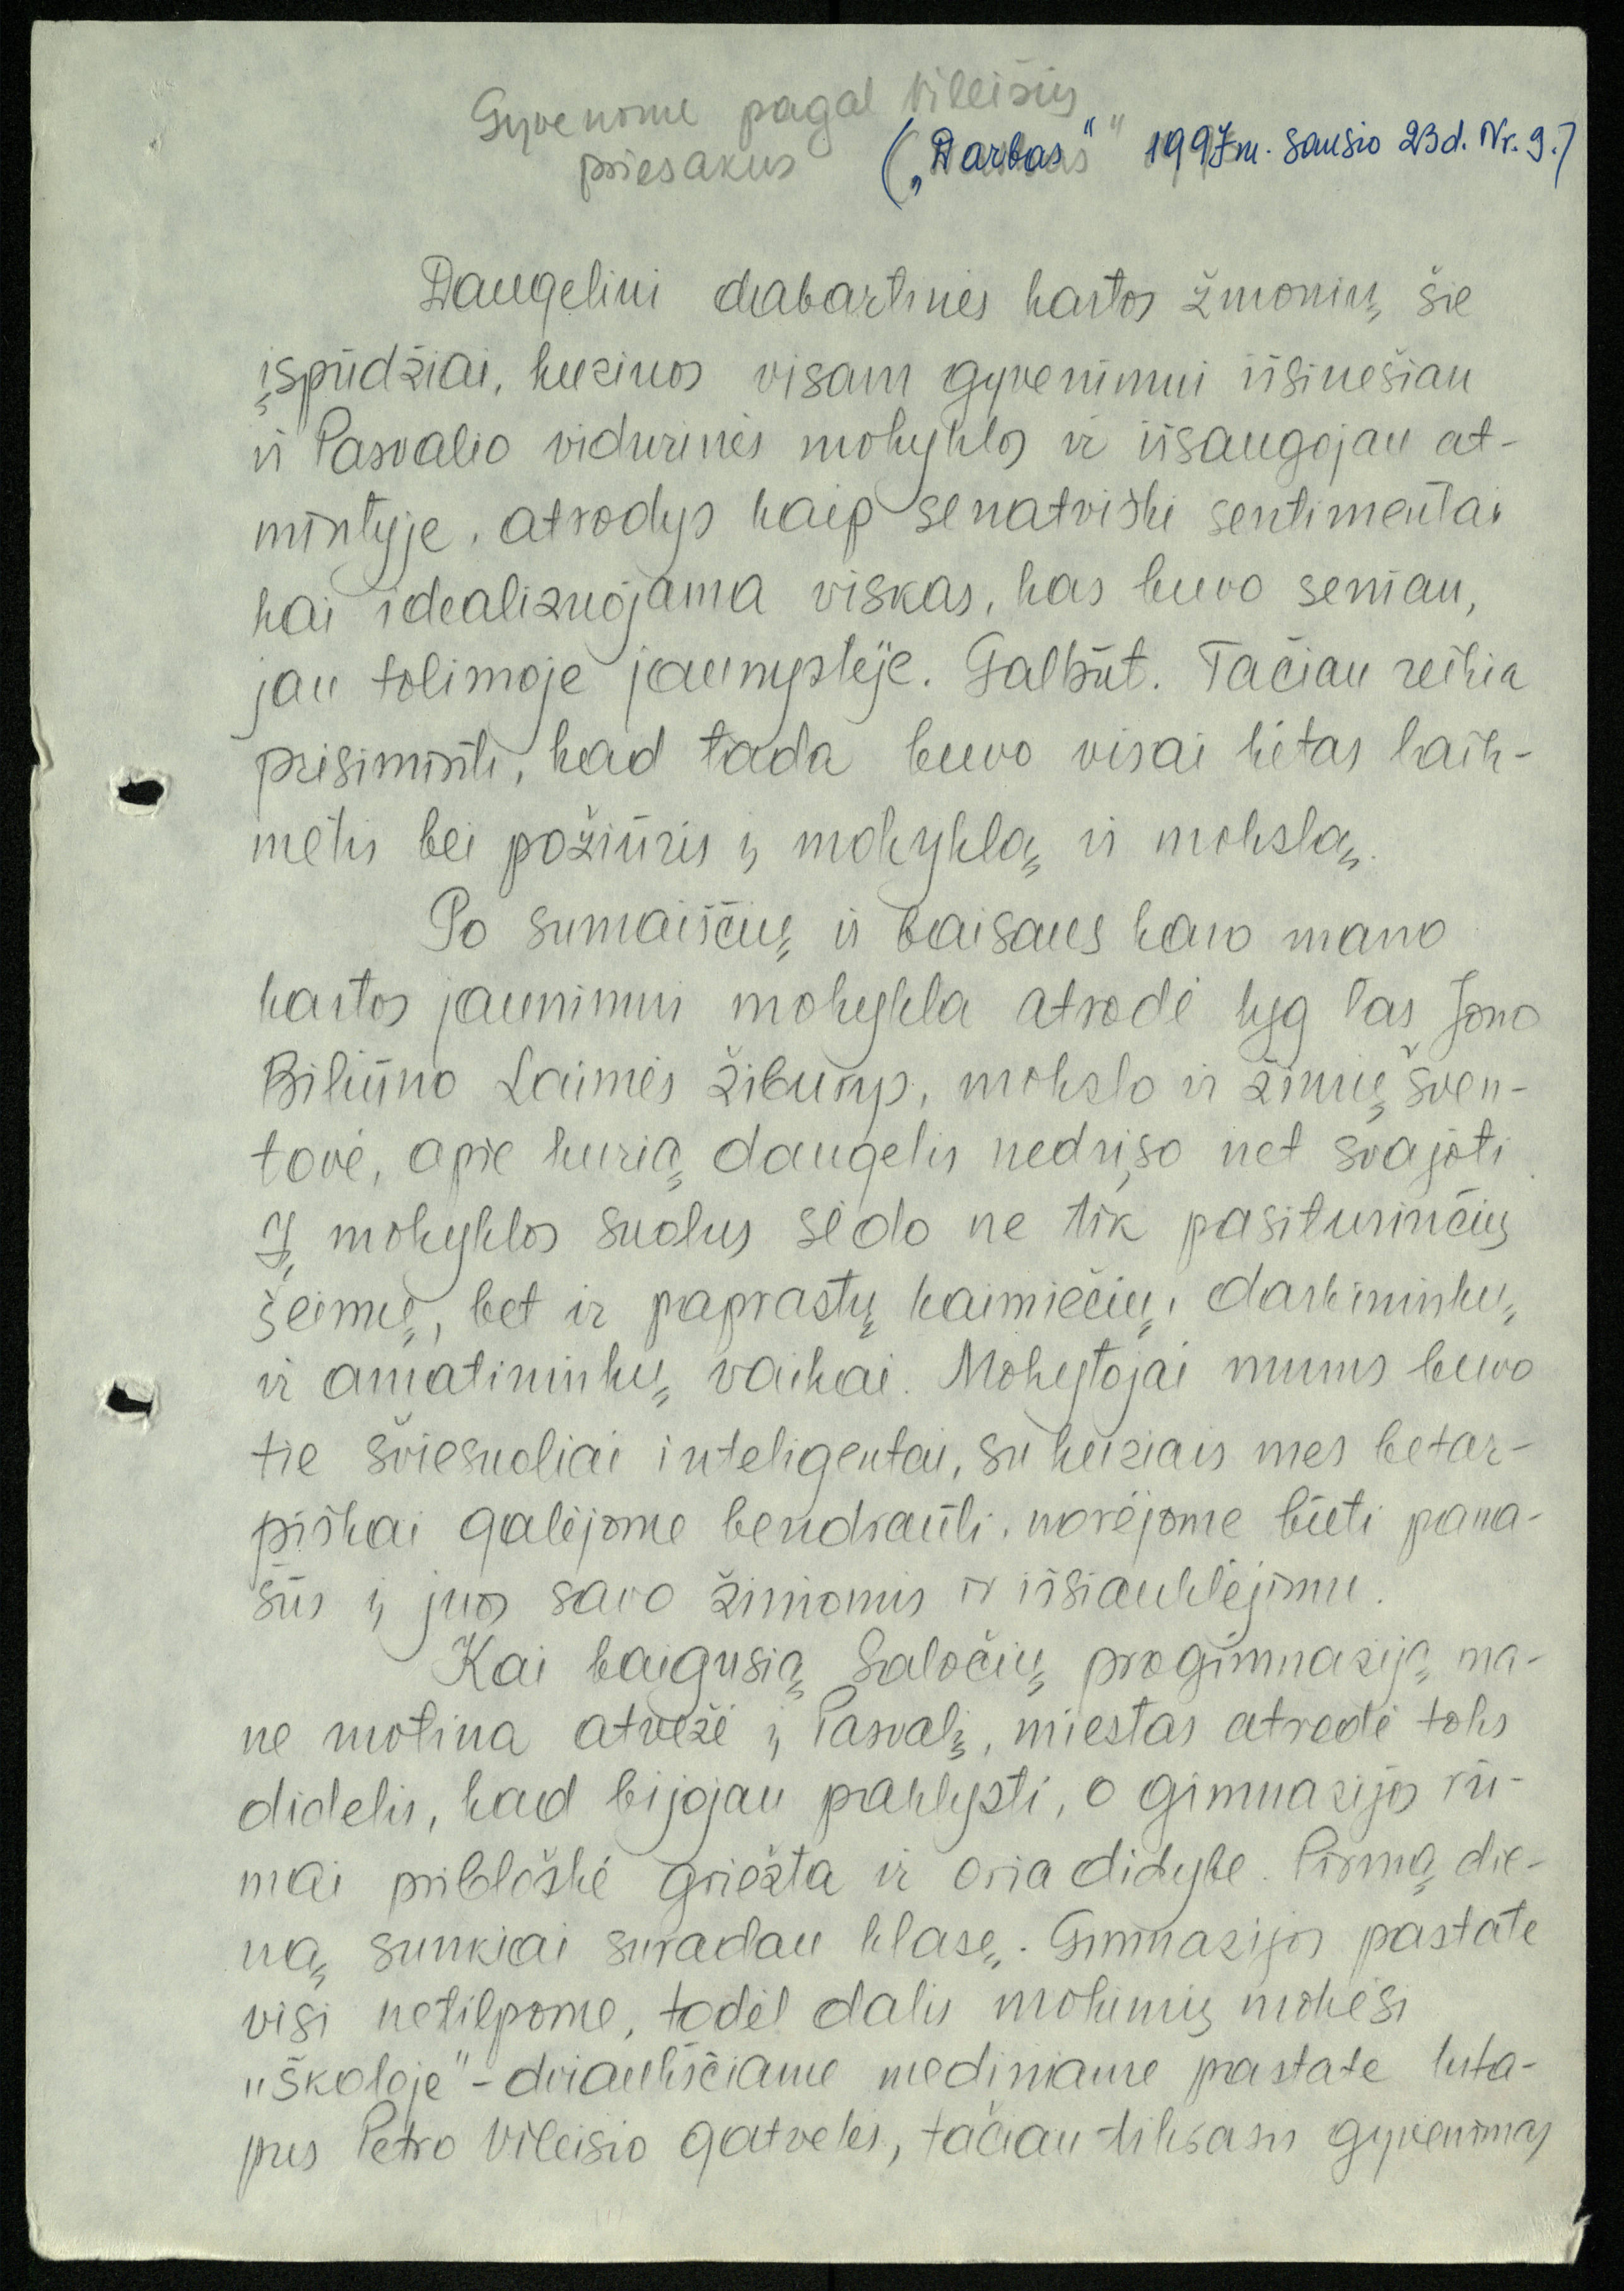 Gyvenome pagal Vileišių
priesakus („Darbas“ 1997 m. sausio 23 d. Nr. 9.)
Daugeliui dabartinės kartos žmonių šie
įspūdžiai, kuriuos visam gyvenimui išsinešiau
iš Pasvalio vidurinės mokyklos ir išsaugojau at-
mintyje, atrodys kaip senatviški sentimentai
kai idealizuojama viskas, kas buvo seniau,
jau tolimoje jaunystėje. Galbūt. Tačiau reikia
prisiminti, kad tada buvo visai kitas laik-
metis bei požiūris į mokyklą ir mokslą.
Po sumaiščių ir baisaus karo mano
kartos jaunimui mokykla atrodė lyg tas Jono
Biliūno Laimės žiburys, mokslo ir žinių šven-
tovė, apie kurią daugelis nedrįso net svajoti.
Į mokyklos suolus sėdo ne tik pasiturinčių
šeimų, bet ir paprastų kaimiečių, darbininkų
ir amatininkų vaikai. Mokytojai mums buvo
tie šviesuoliai inteligentai, su kuriais mes betar-
piškai galėjome bendrauti, norėjome būti pana-
šūs į juos savo žiniomis ir išsiauklėjimu.
Kai baigusią Saločių progimnaziją ma-
ne motina atvežė į Pasvalį, miestas atrodė toks
didelis, kad bijojau paklysti, o gimnazijos rū-
mai pribloškė griežta ir oria didybe. Pirmą die-
ną sunkiai suradau klasę. Gimnazijos pastate
visi netilpome, todėl dalis mokinių mokėsi
"školoje" - dviaukščiame mediniame pastate kita-
pus Petro Vileišio gatvelės, tačiau tikrasis gyvenimas